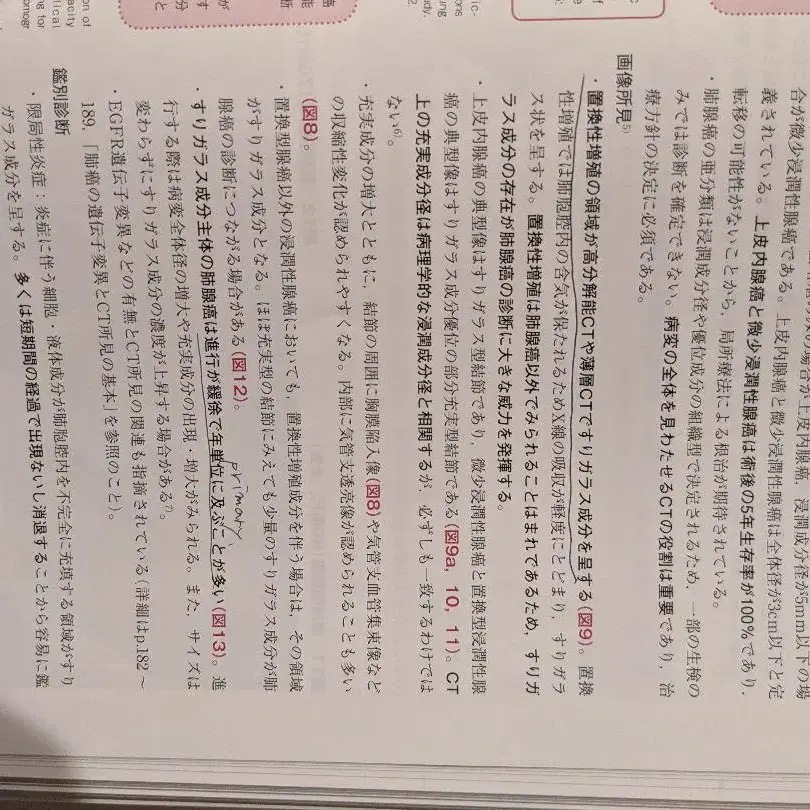 合が微少浸潤性腺癌である。上皮内腺癌と微少浸潤性腺癌は全体径が3cm以下と定
義されている。上皮内腺癌と微少浸潤性腺癌は術後の5年生存率が100%であり,
転移の可能性がないことから, 局所療法による根治が期待されている。
・肺腺癌の亜分類は浸潤成分径や優位成分の組織型で決定されるため, 一部の生検の
みでは診断を確定できない。病変の全体を見わたせるCTの役割は重要であり, 治
療方針の決定に必須である。
画像所見5)
・置換性増殖の領域が高分解能CTや薄層CTですりガラス成分を呈する(図9)。置換
性増殖では肺胞腔内の含気が保たれるためX線の吸収が軽度にとどまり, すりガラ
ス状を呈する。置換性増殖は肺腺癌以外でみられることはまれであるため, すりガ
ラス成分の存在が肺腺癌の診断に大きな威力を発揮する。
・上皮内腺癌の典型像はすりガラス型結節であり, 微少浸潤性腺癌と置換型浸潤性腺
癌の典型像はすりガラス成分優位の部分充実型結節である(図9a, 10, 11)。CT
上の充実成分径は病理学的な浸潤成分径と相関するが, 必ずしも一致するわけでは
ない6)。
・充実成分の増大とともに, 結節の周囲に胸膜陥入像(図8)や気管支血管集束像など
の収縮性変化が認められやすくなる。内部に気管支透亮像が認められることも多い
(図8)。
・置換型腺癌以外の浸潤性腺癌においても, 置換性増殖成分を伴う場合は, その領域
がすりガラス成分となる。ほぼ充実型の結節にみえても少量のすりガラス成分が肺
腺癌の診断につながる場合がある(図12)。
primary
・すりガラス成分主体の肺腺癌は進行が緩徐で年単位に及ぶことが多い(図13)。進
行する際は病変全体径の増大や充実成分の出現・増大がみられる。また, サイズは
変わらずにすりガラス成分の濃度が上昇する場合がある7)。
・EGFR遺伝子変異などの有無とCT所見の関連も指摘されている(詳細はp.182~
189, 「肺癌の遺伝子変異とCT所見の基本」を参照のこと)。
鑑別診断
・限局性炎症:炎症に伴う細胞・液体成分が肺胞腔内を不完全に充填する領域がすり
ガラス成分を呈する。多くは短期間の経過で出現ないし消退することから容易に鑑